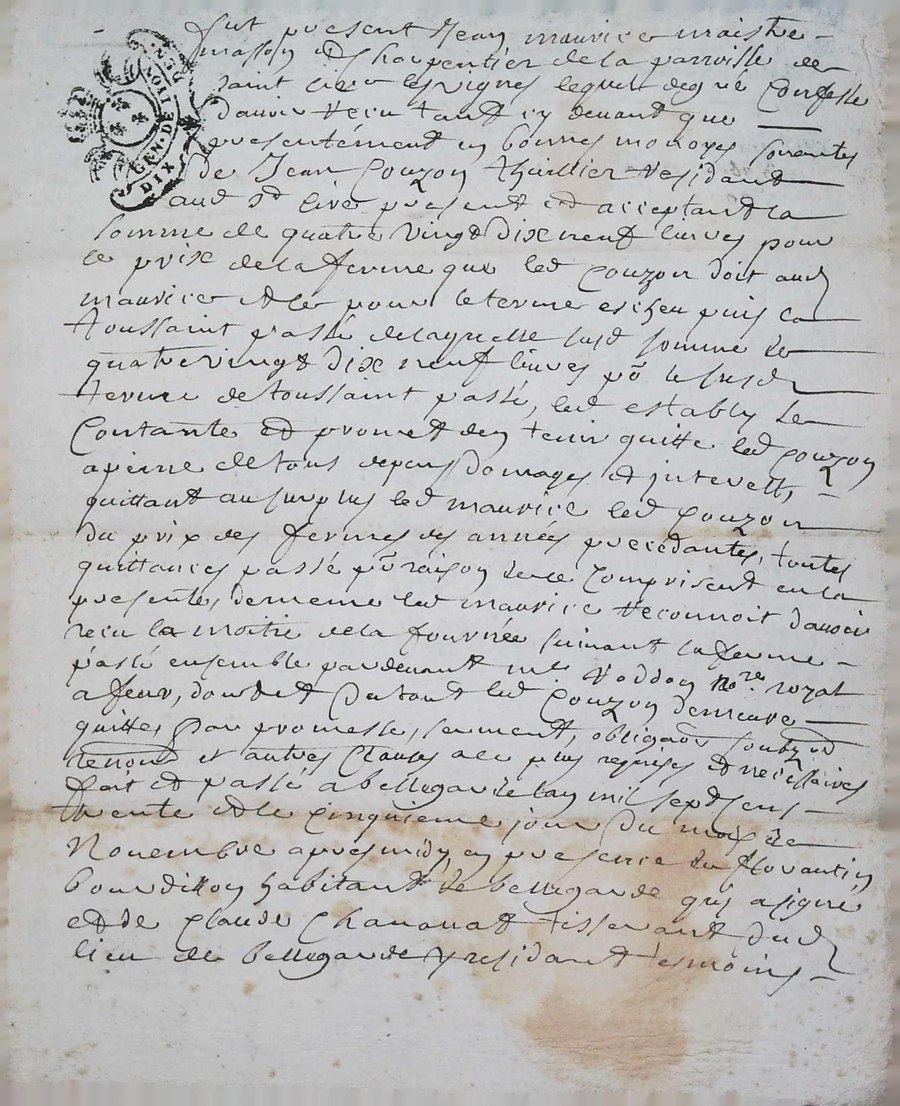 GEN. DE LION
DIX DEN.
fut present Jean maurice maistre
masson et Charpentier de la parroisse de
saint Cire les vignes lequel de gré Confesse
dauoir receu tant cy deuant que
presentement en bonnes monoyes sonantes
de Jean Couzon thuillier residant
aud st Cire present et acceptant la
somme de quatre vingt dix neuf liures pour
le prix de la ferme que led Couzon doit aud
maurice et ce pour le terme escheu puis la
toussaint passé de laquelle susd somme de
quatre vingt dix neuf liures po le susd
terme de toussaint passé, led estably se
Contante et promet den tenir quitte led Couzon
a peine de tous depens domages et interests,
quittant au surplus led maurice led Couzon
du prix des fermes des années precedantes, toutes
quittances passé po raison de ce Comprises en la
presente, de meme led maurice reconnoit dauoir
receu la moitié de la journée suiuant la ferme
passé ensemble par deuant me nore royal
a feur, dont et du tout led Couzon demeure
quitte, Par promesse, serment, obligaon soubz et
renonc et autres Clauses a ce plus requises et necessaires
fait et passé a bellegarde lan mil sept Cens
trente et le Cinquieme jour du mois de
Nouembre apres midy en presence de florantin
bourdillon habitant de bellegarde qui a signé
et de Claude Chauanat tisserant dud
lieu de bellegarde y residant tesmoins